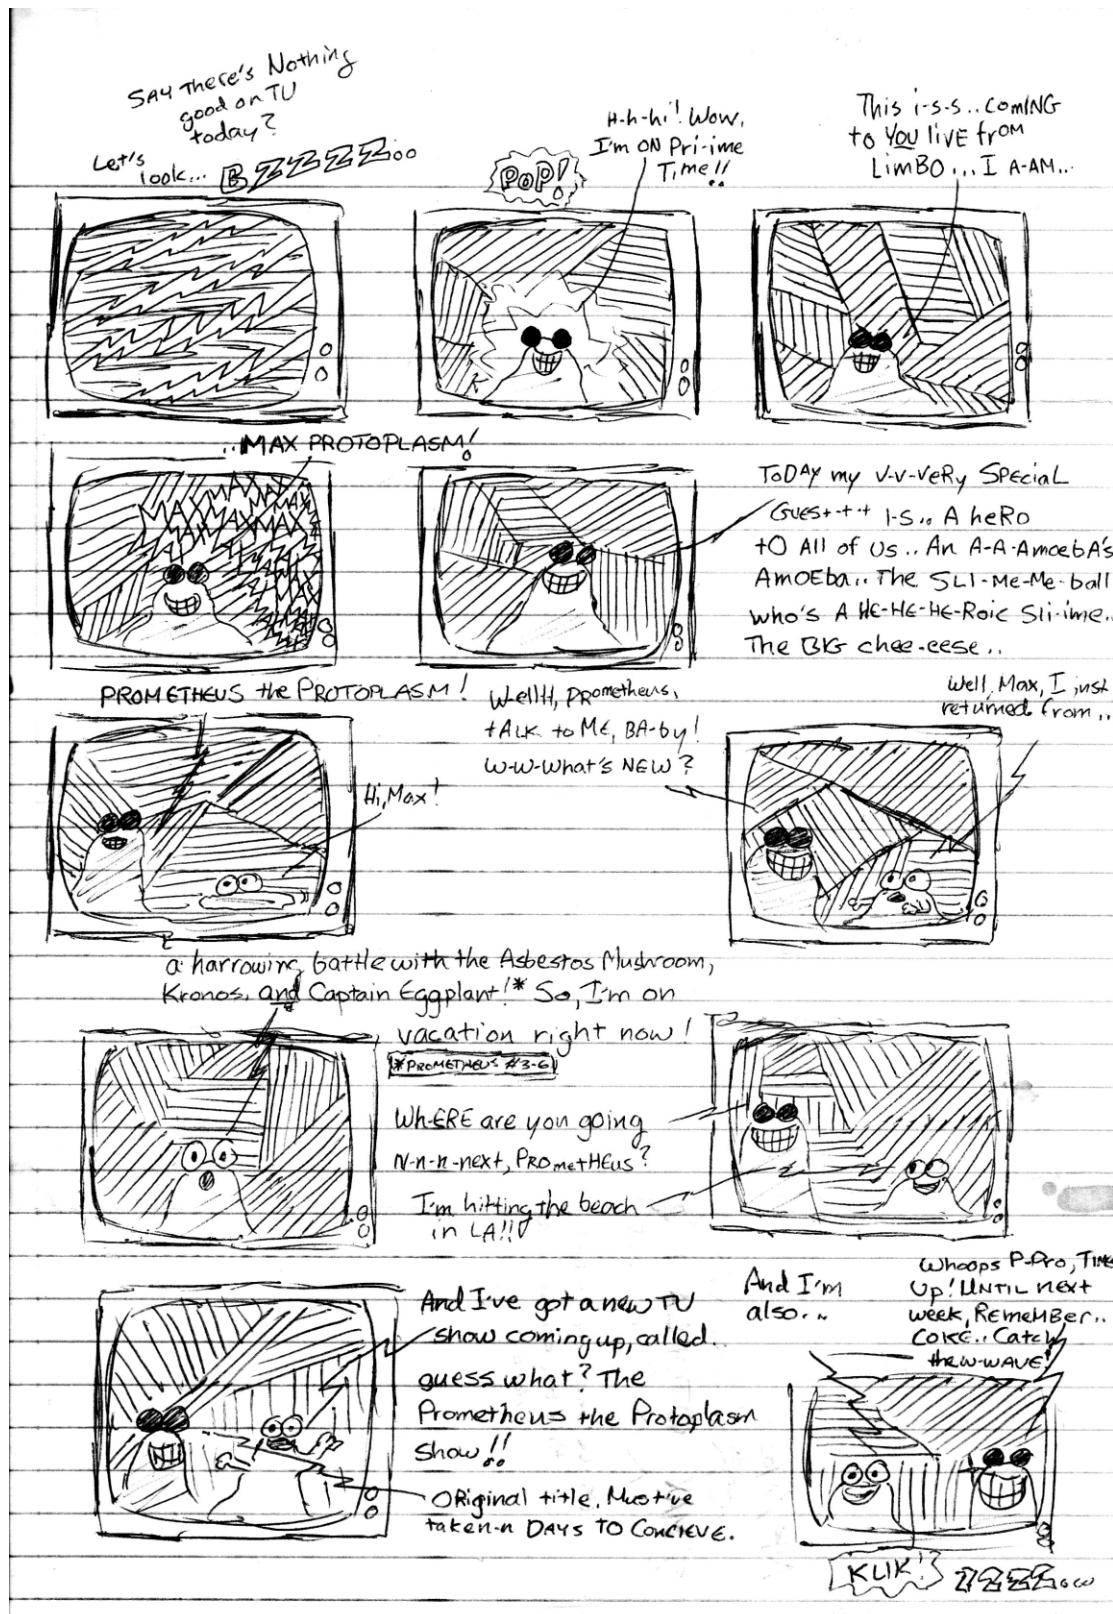 SAY There's Nothing
good on TV
today?
Let's
look... BZZZZ...
POP!
H-h-hi! Wow,
I'm ON Pri-ime
Time!!
This i-s-s.. comING
to YOU live from
LimBO... I A-AM...
..MAX PROTOPLASM!
MAX MAX
MAXMAXMAX
ToDAY my v-v-veRy SPEciaL
Guest-t-t I-S.. A heRo
tO All of Us.. An A-A-AmoebA's
AmoEba.. The SLI-Me-Me-ball
who's A HE-HE-HE-Roic Sli-ime..
The BIG chee-eese..
PROMETHEUS the PROTOPLASM!
Hi, Max!
WellH, Prometheus,
tALK to ME, BA-by!
W-W-What's NEW?
Well, Max, I just
returned from..
a harrowing battle with the Asbestos Mushroom,
Kronos, and Captain Eggplant!* So, I'm on
vacation right now!
*PROMETHEUS #3-6
Wh-ERE are you going
N-n-n-next, PROmetHEus?
I'm hitting the beach
in LA!!!
And I've got a new TV
show coming up, called..
guess what? The
Prometheus the Protoplasm
Show!!
ORiginal title. Must've
taken-n DAYS TO CONCIEVE.
And I'm
also..
Whoops P-Pro, TIME
Up! UNTIL next
week, REMEMBER..
COKE.. Catch
the W-WAVE!
KLIK! ZZZZ...